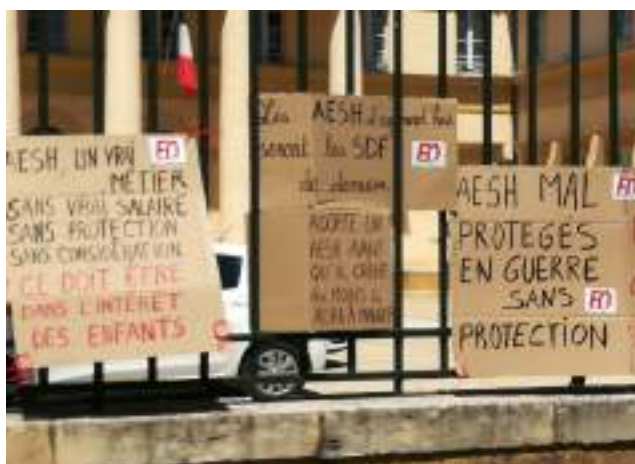 AESH UN VRAI FO
METIER
SANS VRAI SALAIRE
SANS PROTECTION
SANS CONSIDERATION
CE DOIT ETRE
DANS L'INTERET
DES ENFANTS
Les AESH
seront les SDF FO
de demain
ADOPTE UN
AESH AVANT
QU'IL CREVE
AU MOINS IL
AESH MAL FO
PROTEGES
EN GUERRE
SANS FO
PROTECTION